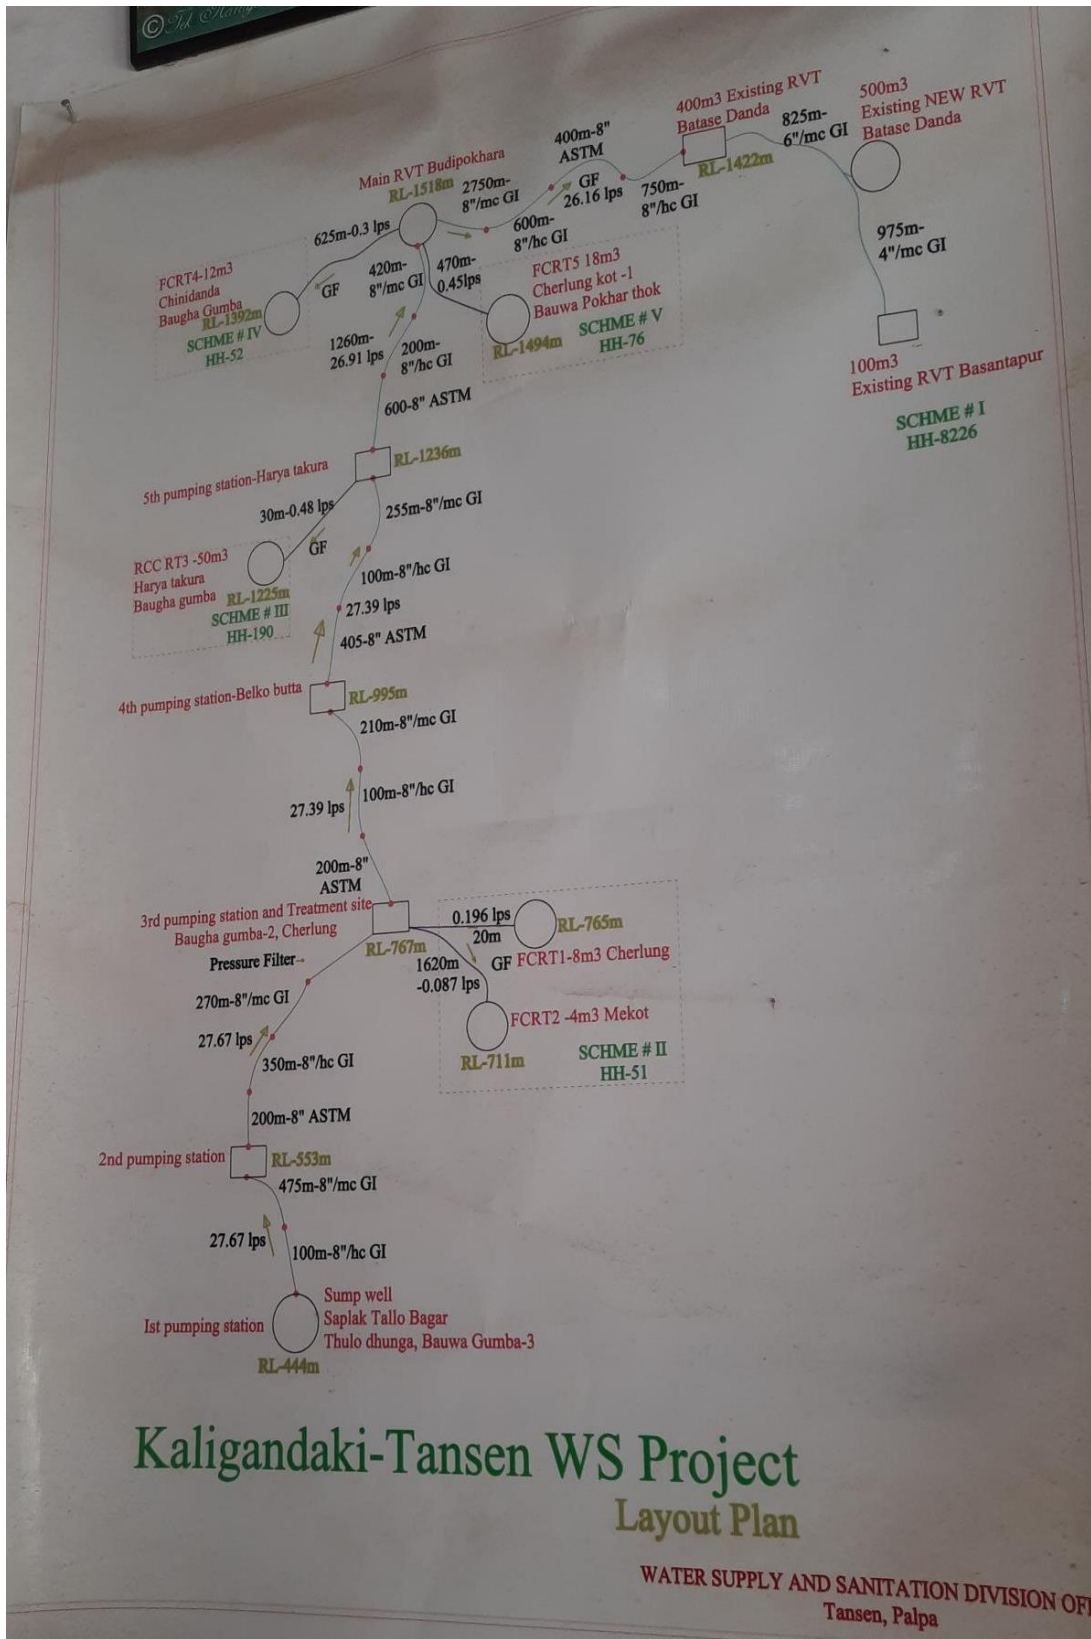 © Tek
400m3 Existing RVT
Batase Danda
RL-1422m
825m-
6"/mc GI
500m3
Existing NEW RVT
Batase Danda
400m-8"
ASTM
GF
26.16 lps
750m-
8"/hc GI
Main RVT Budipokhara
RL-1518m
2750m-
8"/mc GI
600m-
8"/hc GI
625m-0.3 lps
GF
FCRT4-12m3
Chinidanda
Baugha Gumba
RL-1392m
SCHME # IV
HH-52
420m-
8"/mc GI
470m-
0.45lps
FCRT5 18m3
Cherlung kot -1
Bauwa Pokhar thok
RL-1494m
SCHME # V
HH-76
975m-
4"/mc GI
100m3
Existing RVT Basantapur
SCHME # I
HH-8226
1260m-
26.91 lps
200m-
8"/hc GI
600-8" ASTM
5th pumping station-Harya takura
RL-1236m
30m-0.48 lps
GF
255m-8"/mc GI
RCC RT3 -50m3
Harya takura
Baugha gumba
RL-1225m
SCHME # III
HH-190
100m-8"/hc GI
27.39 lps
405-8" ASTM
4th pumping station-Belko butta
RL-995m
210m-8"/mc GI
27.39 lps
100m-8"/hc GI
200m-8"
ASTM
3rd pumping station and Treatment site
Baugha gumba-2, Cherlung
RL-767m
0.196 lps
20m
RL-765m
FCRT1-8m3 Cherlung
1620m
-0.087 lps
GF
FCRT2 -4m3 Mekot
RL-711m
SCHME # II
HH-51
Pressure Filter
270m-8"/mc GI
27.67 lps
350m-8"/hc GI
200m-8" ASTM
2nd pumping station
RL-553m
475m-8"/mc GI
27.67 lps
100m-8"/hc GI
Ist pumping station
Sump well
Saplak Tallo Bagar
Thulo dhunga, Bauwa Gumba-3
RL-444m
Kaligandaki-Tansen WS Project
Layout Plan
WATER SUPPLY AND SANITATION DIVISION OF
Tansen, Palpa